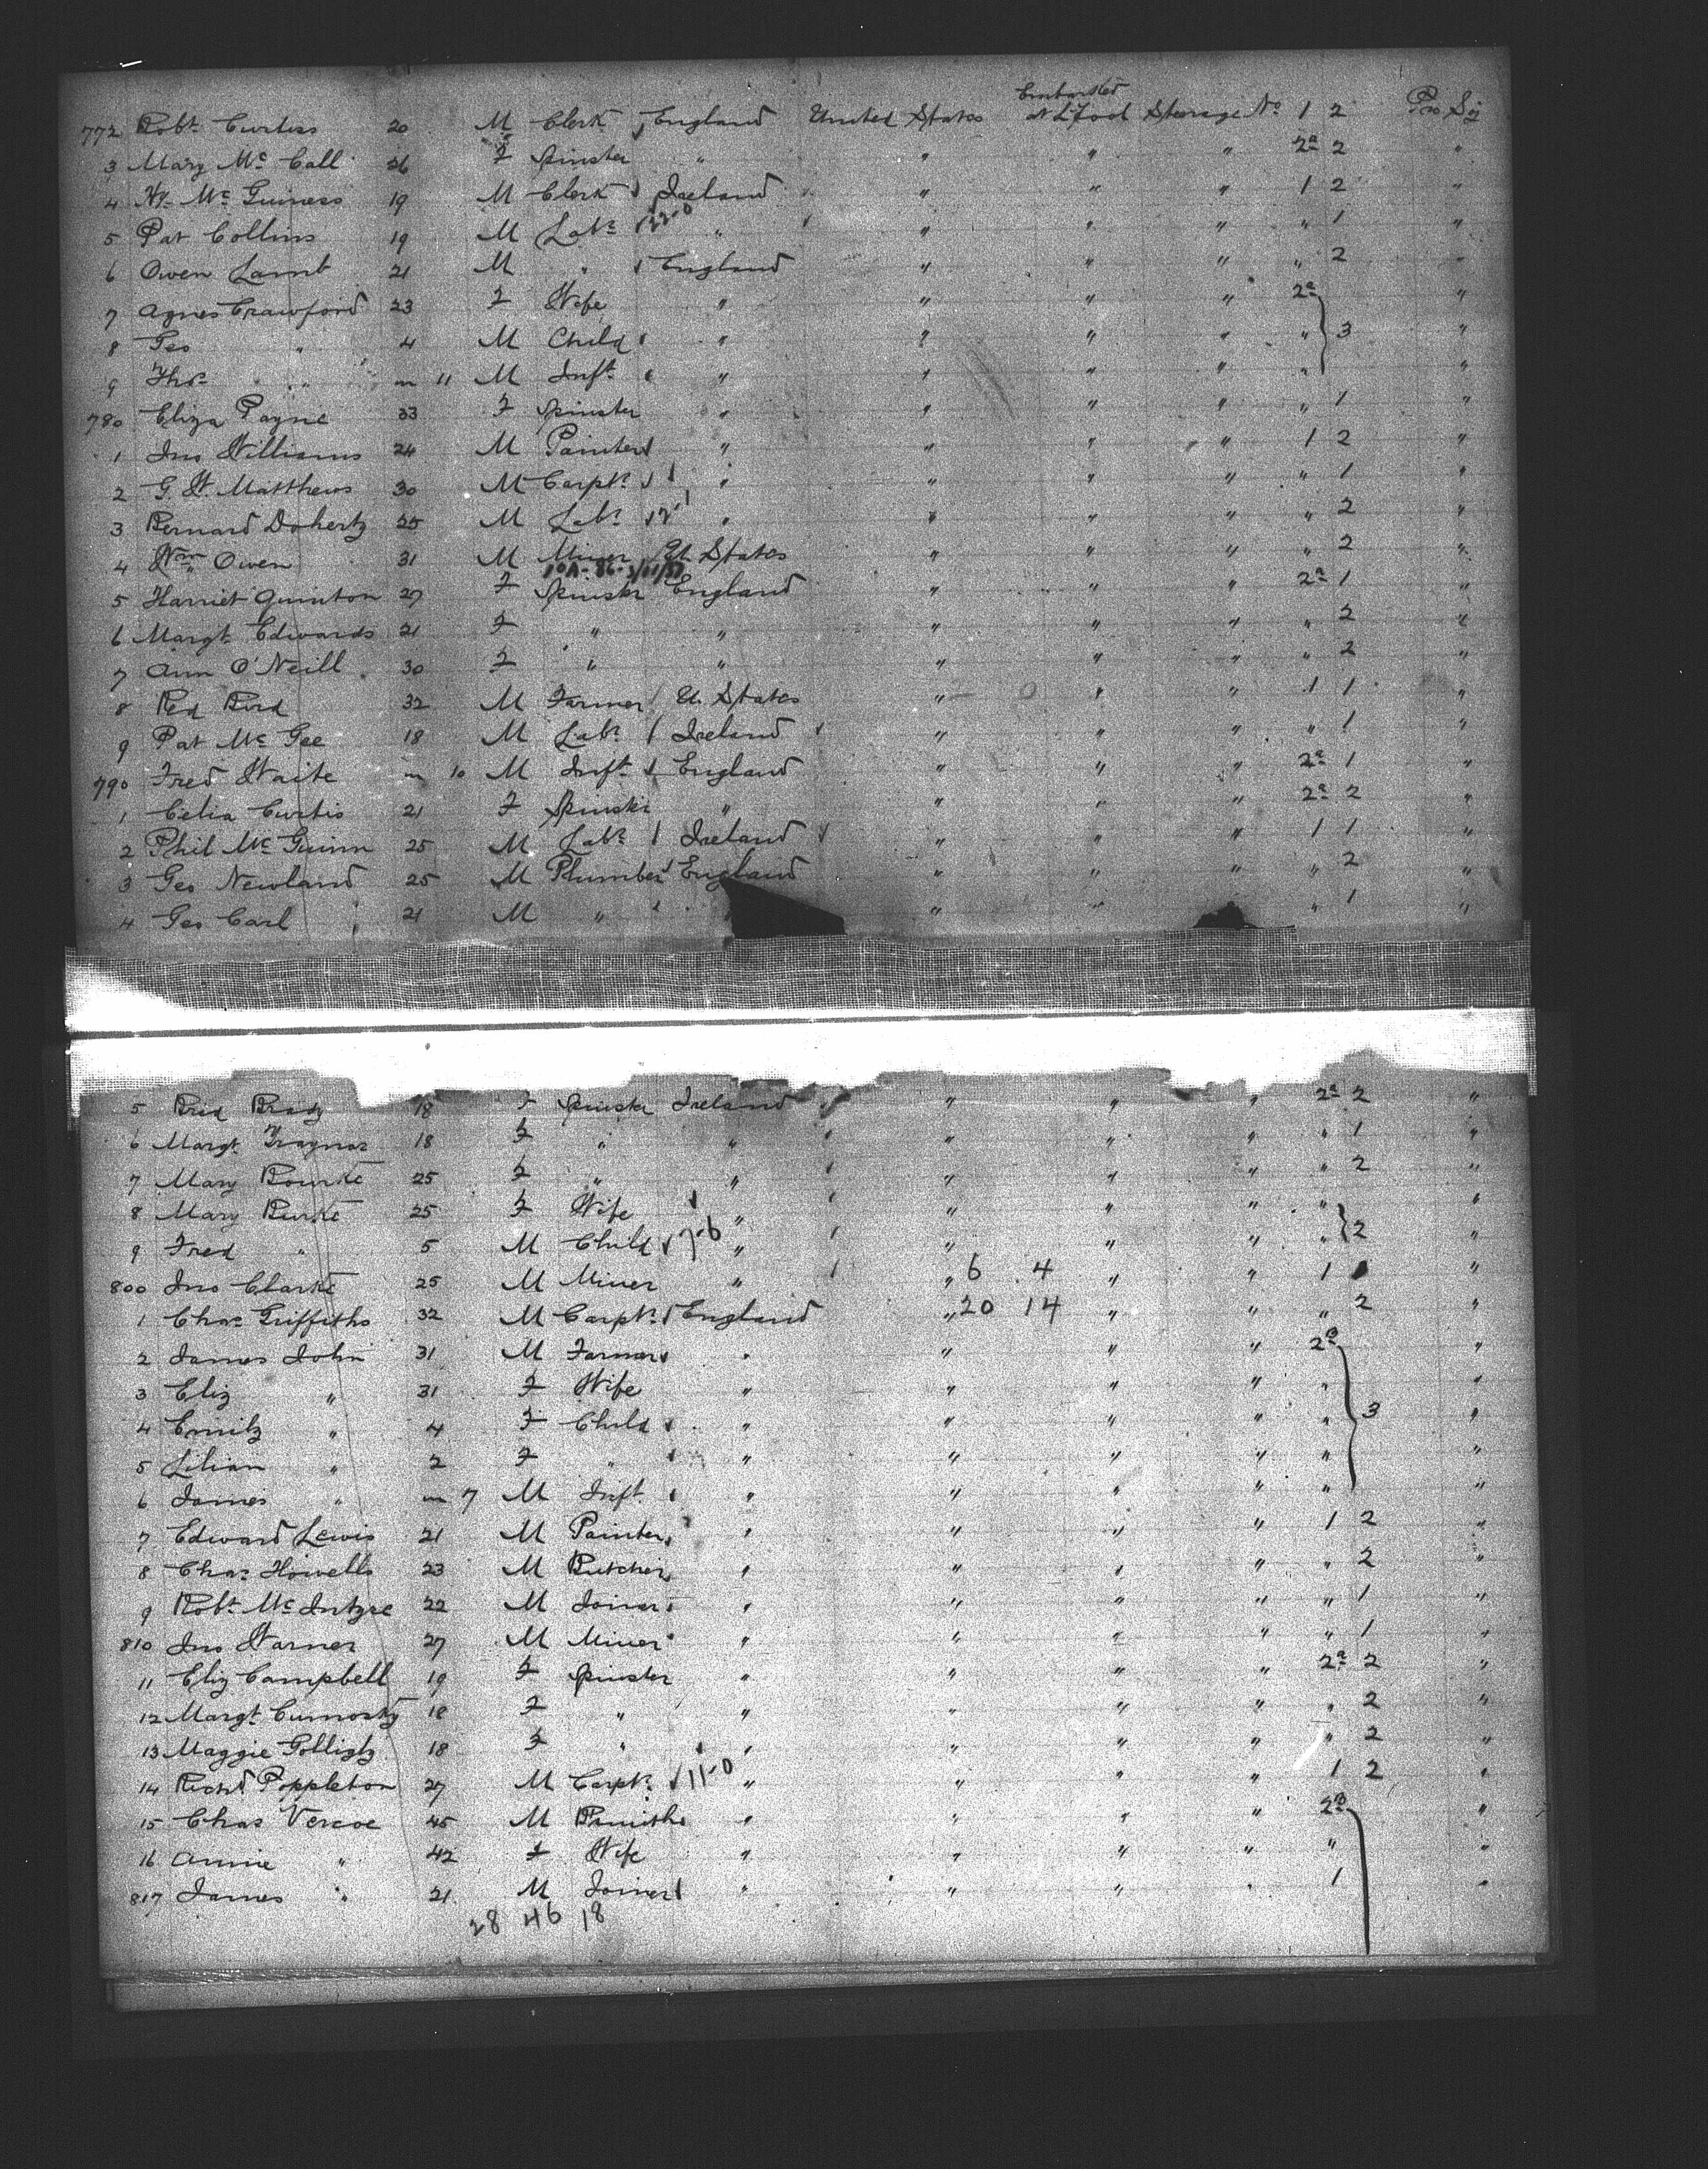 Embarked
772 Robt Curtiss 20 M Clerk England United States at L'pool Steerage No 1 2 Pro Sj
3 Mary Mc Call 26 F Spinster " " " " 2a 2 "
4 Hy Mc Guiness 19 M Clerk Ireland " " " 1 2 "
5 Pat Collins 19 M Labr " " " " " 1 "
6 Owen Lamb 21 M " England " " " " 2 "
7 Agnes Crawford 23 F Wife " " " " 2a "
8 Geo " 4 M Child " " " " " 3 "
9 Thos " m 11 M Inft " " " " " "
780 Eliza Payne 33 F Spinster " " " " " 1 "
1 Jno Williams 24 M Painter " " " " 1 2 "
2 G. W. Matthews 30 M Carptr " " " " " 1 "
3 Bernard Doherty 25 M Labr " " " " " 2 "
4 Wm Owen 31 M Miner U. States " " " " 2 "
5 Harriet Quinton 27 F Spinster England " " " 2a 1 "
6 Margt Edwards 21 F " " " " " " 2 "
7 Ann O'Neill 30 F " " " " " " 2 "
8 Red Bird 32 M Farmer U. States " " " 1 1 "
9 Pat Mc Gee 18 M Labr Ireland " " " " 1 "
790 Fred Waite m 10 M Inft England " " " 2a 1 "
1 Celia Curtis 21 F Spinstr " " " " 2a 2 "
2 Phil Mc Guinn 25 M Labr Ireland " " " 1 1 "
3 Geo Newland 25 M Plumber England " " " " 2 "
4 Geo Carl 21 M " " " " " 1 "
5 Brid Brady 18 F Spinstr Ireland " " " 2a 2 "
6 Margt 18 F " " " " " " 1 "
7 Mary Bourke 25 F " " " " " " 2 "
8 Mary Burke 25 F Wife " " " " " "
9 Fred " 5 M Child 7-6 " " " " " 2 "
800 Jno Clarke 25 M Miner " " 6 4 " " 1 "
1 Chas Griffiths 32 M Carptr England " 20 14 " " " 2 "
2 James John 31 M Farmer " " " " 2a "
3 Eliz " 31 F Wife " " " " " "
4 Emily " 4 F Child " " " " " 3 "
5 Lilian " 2 F " " " " " " "
6 James " m 7 M Inft " " " " " "
7 Edward Lewis 21 M Painter " " " " 1 2 "
8 Chas Howells 23 M Butcher " " " " " 2 "
9 Robt Mc Intyre 22 M Joiner " " " " " 1 "
810 Jno Warner 27 M Miner " " " " " 1 "
11 Eliz Campbell 19 F Spinster " " " " 2a 2 "
12 Margt 18 F " " " " " " 2 "
13 Maggie 18 F " " " " " " 2 "
14 Richd Poppleton 27 M Carptr 11-0 " " " " 1 2 "
15 Chas Vercoe 45 M Bsmith " " " " 2a "
16 Annie " 42 F Wife " " " " " "
817 James " 21 M Joiner " " " " 1 "
28 46 18